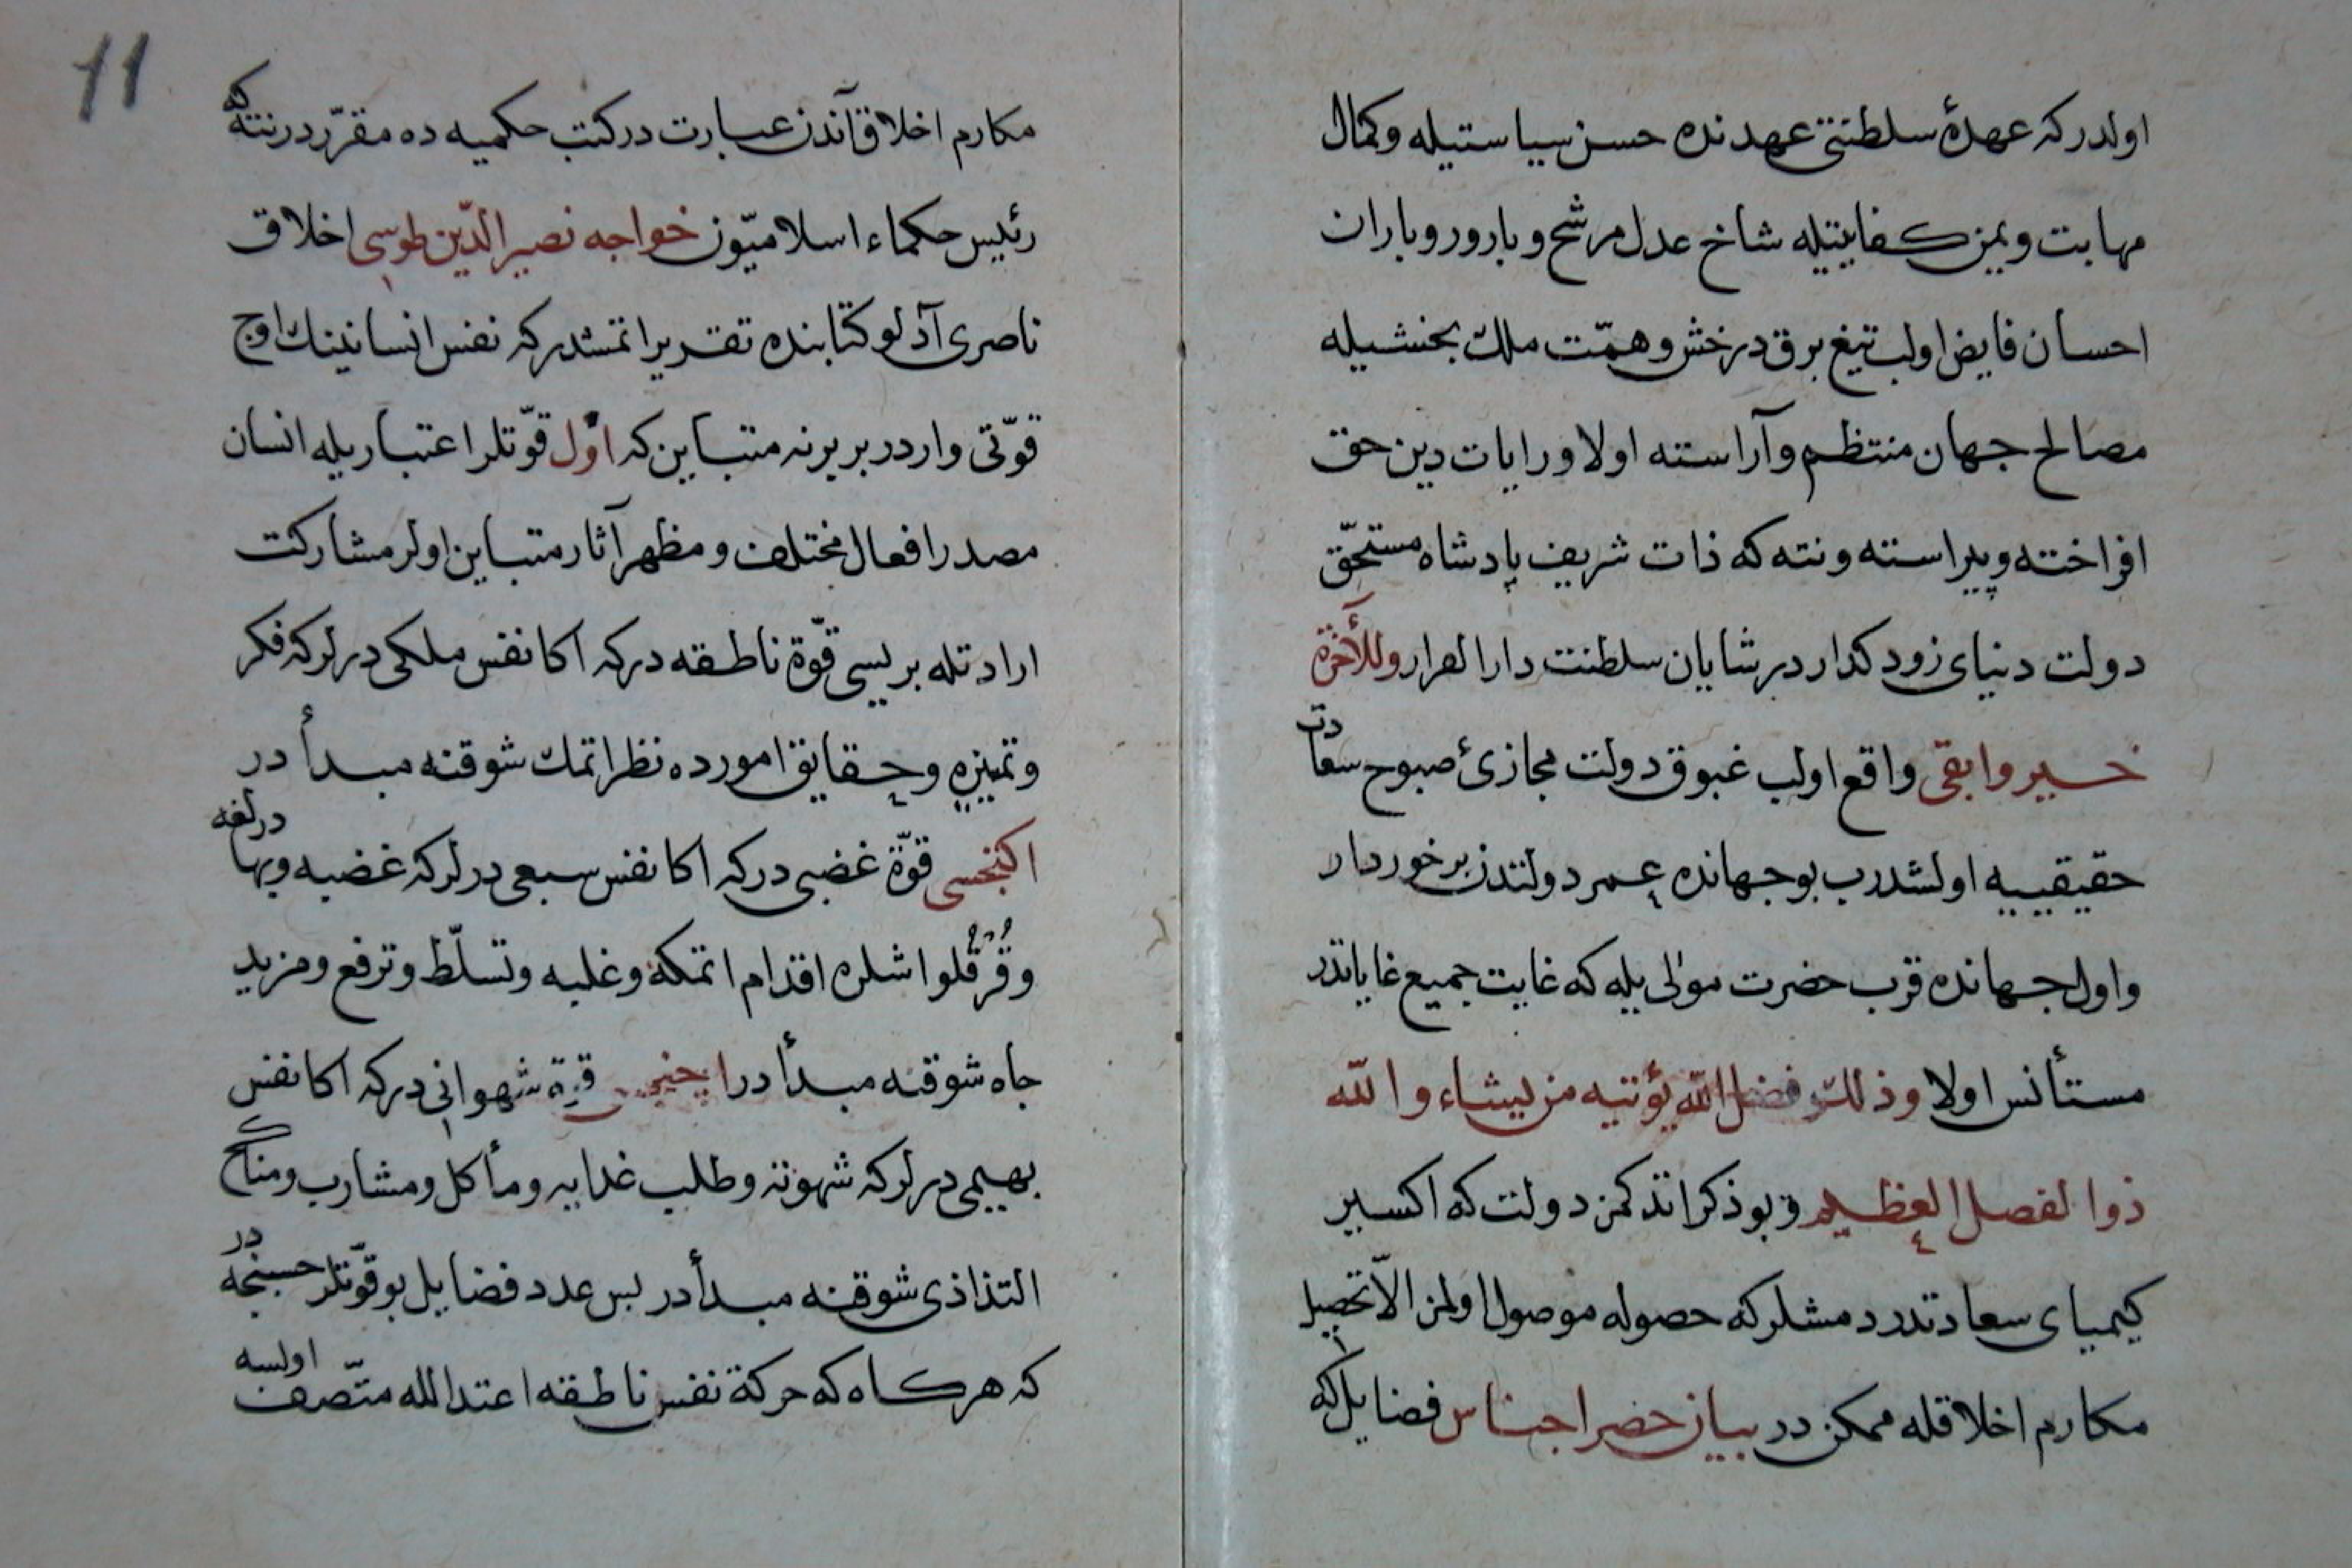 اولدر كه عهدهٔ سلطنتی عهدنده حسن سیاستیله وكمال
مهابت ویمن كفایتیله شاخ عدل مرشح وبارور وباران
احسان فایض اولب تیغ برق درخش وهمّت ملك بخششیله
مصالح جهان منتظم وآراسته اولا ورایات دین حق
افراخته وپیراسته ونته كه ذات شریف پادشاه مستحقّ
دولت دنیای زود كدار در شایان سلطنت دار القرار وللآخرة
خیر وابقی واقع اولب غبوق دولت مجازیٔ صبوح سعادت
حقیقییه اولشدرب بوجهانده عمر دولتدن برخوردار
واول جهانده قرب حضرت مولی یله كه غایت جمیع غایاتدر
مستأنس اولا وذلك فضل الله یؤتیه من یشاء والله
ذو الفضل العظیم وبو ذكر اتدكمن دولت كه اكسیر
كیمیای سعادتدر دمشلر كه حصوله موصول اولمن الّا تحصیل
مكارم اخلاقله ممكن در بیان حصر اجناس فضایل كه
11
مكارم اخلاق آندن عبارت در كتب حكمیه ده مقرّر در نته كه
رئیس حكماء اسلامیّون خواجه نصیر الدّین طوسی اخلاق
ناصری آدلو كتابنده تقدیر اتمشدر كه نفس انسانینك اوج
قوّتی وار در بر برنه متباین كه اوّل قوّتلر اعتباریله انسان
مصدر افعال مختلف ومظهر آثار متباین اولر مشاركت
ارادتله بریسی قوّة ناطقه در كه اكا نفس ملكی درلر كه فكر
وتمییزه وحقایق امورده نظر اتمك شوقنه مبدأ در
اكنجسی قوّة غضبی در كه اكا نفس سبعی درلر كه غضبه وبهادرلغه
وقُرقُلو اشلره اقدام اتمكه وغلبه وتسلّط وترفع ومزید
جاه شوقنه مبدأ در اچنجسی قوّة شهوانی در كه اكا نفس
بهیمی درلر كه شهوته وطلب غدایه ومأكل ومشارب ومناكح
التذاذی شوقنه مبدأ در بس عدد فضایل بو قوّتلر حسبنجه در
كه هر كاه كه حركة نفس ناطقه اعتدالله متّصف اولسه